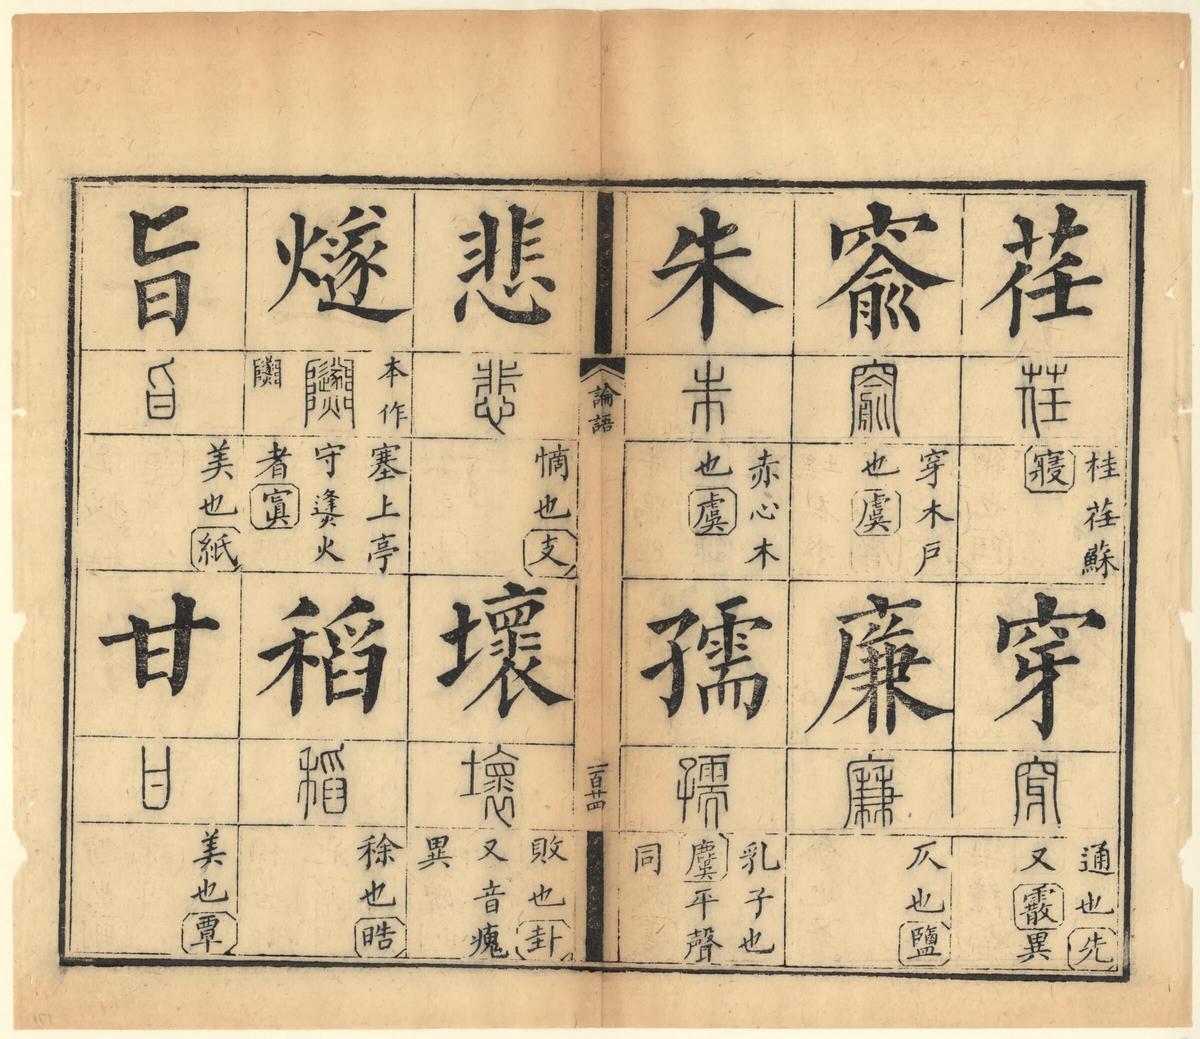 荏
荏
桂荏蘇
寢
穿
穿
通也先
又霰異
窬
窬
穿木戶
也虞
廉
廉
仄也鹽
朱
朱
赤心木
也虞
孺
孺
乳子也
麌平聲
同
論語
一百廿四
悲
悲
也支
壞
壞
敗也卦
又音瘣
異
燧
本作
塞上亭
守㷭火
者寘
稻
稻
稌也晧
旨
旨
美也紙
甘
甘
美也覃